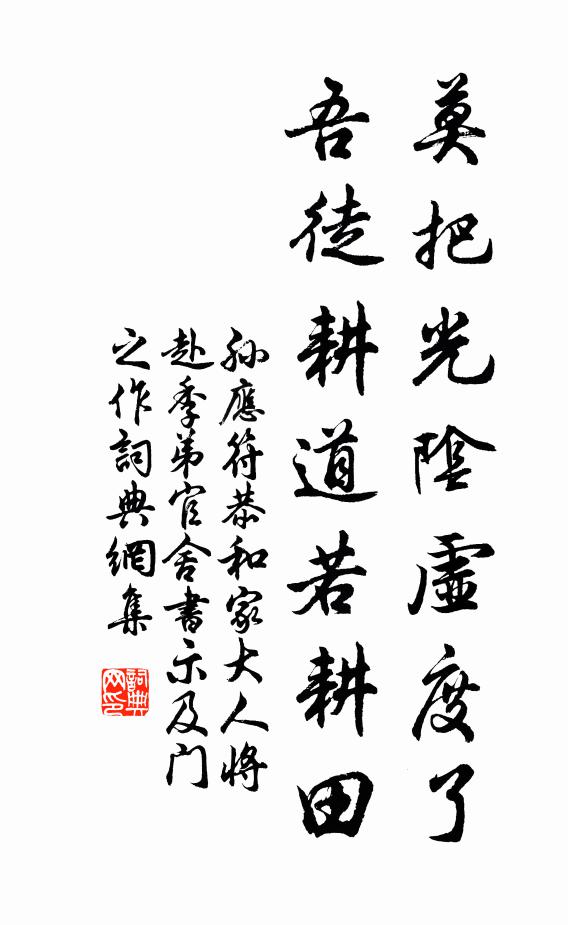 莫把光陰虛度了
吾徒耕道若耕田
孫應符恭和家大人將
赴季弟官舍書示及门
之作詞典網集
詞典网印